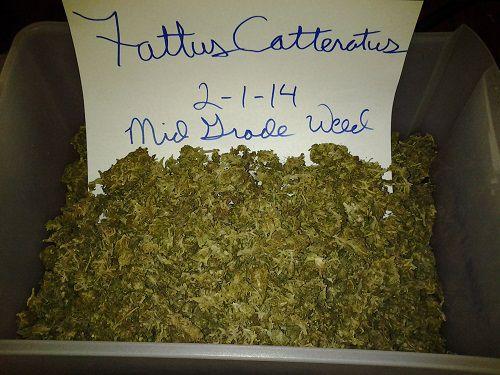 Fattus Catteratus
2-1-14
Mid Grade Weed